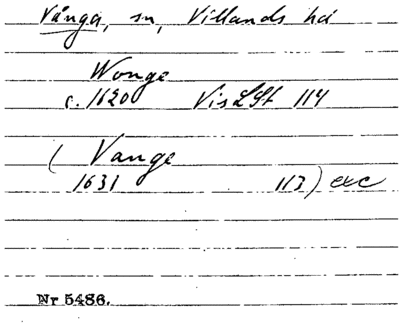 Vånga, sn, Villands hd
Wonge
c. 1620 VisLSt 114
( Vange
1631 113) exc
Nr 5486.